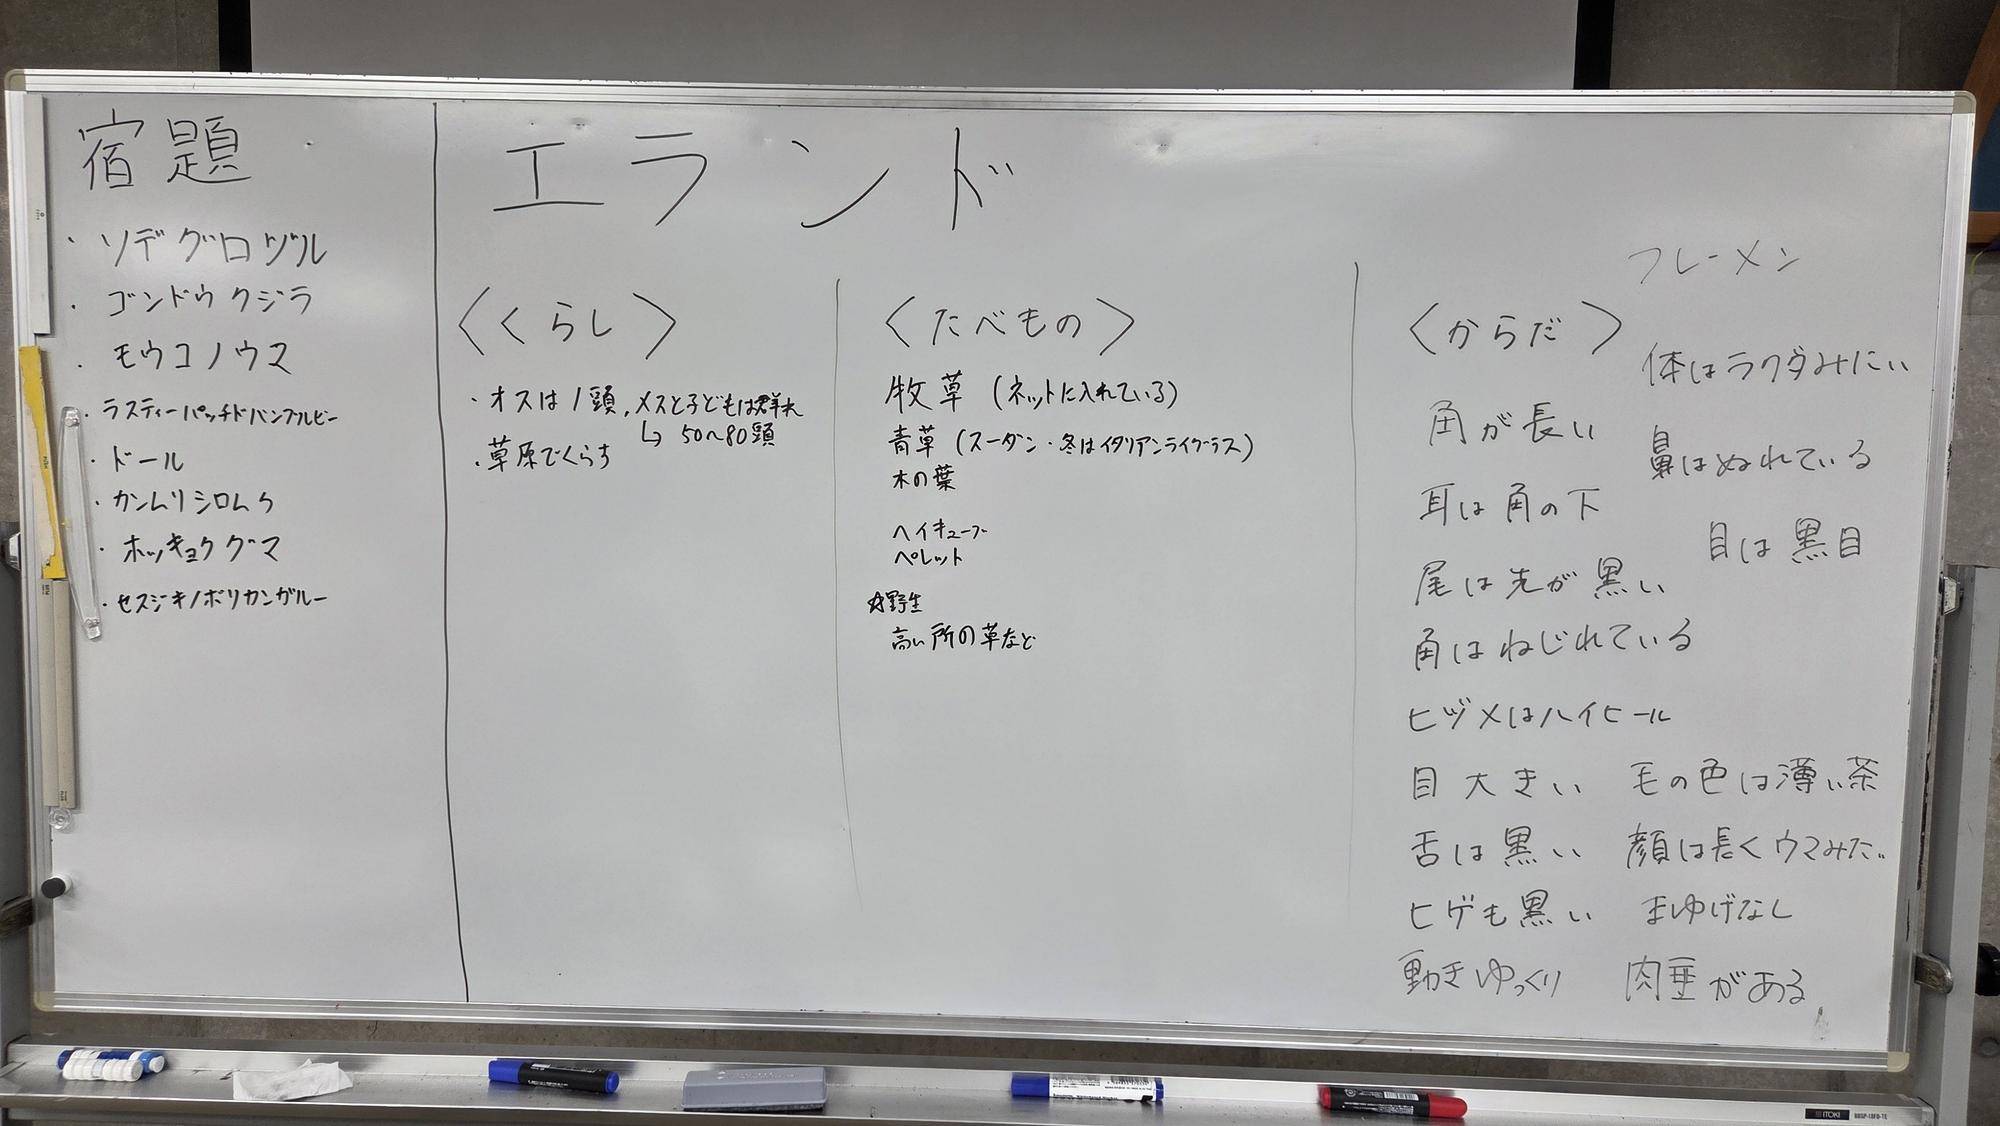 宿題
・ソデグロヅル
・ゴンドウクジラ
・モウコノウマ
・ラスティーパッチドバンブルビー
・ドール
・カンムリシロムク
・ホッキョクグマ
・セスジキノボリカンガルー
エランド
〈くらし〉
・オスは1頭,メスと子どもは群れ
↳ 50〜80頭
・草原でくらす
〈たべもの〉
牧草(ネットに入れている)
青草(スーダン・冬はイタリアンライグラス)
木の葉
ヘイキューブ
ペレット
☆野生
高い所の草など
フレーメン
〈からだ〉
体はラクダみたい
角が長い
鼻はぬれている
耳は角の下
目は黒目
尾は先が黒い
角はねじれている
ヒヅメはハイヒール
目大きい 毛の色は薄い茶
舌は黒い 顔は長くウマみたい
ヒゲも黒い まゆげなし
動きゆっくり 肉垂がある
ITOKI